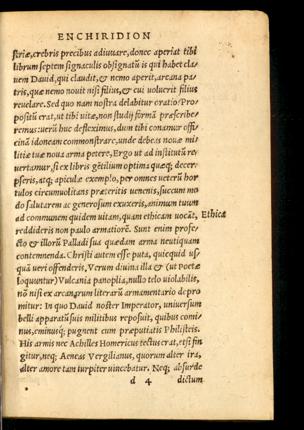 ENCHIRIDION
striæ, crebris precibus adiuuare, donec aperiat tibi
librum septem signaculis obsignatũ is qui habet cla/
uem Dauid, qui claudit, & nemo aperit, arcana pa
tris, quæ nemo nouit nisi filius, & cui uoluerit filius
reuelare. Sed quo nam nostra delabitur oratio? Pro
positũ erat, ut tibi uitæ, non studij formã præscribe/
remus: uerũ huc defleximus, dum tibi conamur offi/
cinã idoneam commonstrare, unde debeas nouæ mi
litiæ tuæ noua arma petere, Ergo ut ad institutũ re
uertamur, si ex libris gẽtilium optima quæq; decer
pseris, atq; apiculæ exemplo, per omnes ueterũ hor
tulos circumuolitans præteritis uenenis, succum mo
do salutarem ac generosum exuxeris, animum tuum
ad communem quidem uitam, quam ethicam uocãt,
Ethica
reddideris non paulo armatiorẽ. Sunt enim profe/
cto & illorũ Palladi sua quædam arma neutiquam
contemnenda. Christi autem esse puta, quicquid us/
quã ueri offenderis, Verum diuina illa & (ut Poetæ
loquuntur) Vulcania panoplia, nullo telo uiolabilis,
nõ nisi ex arcanarum literarũ armamentario depro
mitur: In quo Dauid noster Imperator, uniuersum
belli apparatũ suis militibus reposuit, quibus comi/
nus, eminusq; pugnent cum præputiatis Philistris.
His armis nec Achilles Homericus tectus erat, etsi fin
gitur, neq; Aeneas Vergilianus, quorum alter ira,
alter amore tam turpiter uincebatur. Neq; absurde
d 4
dictum